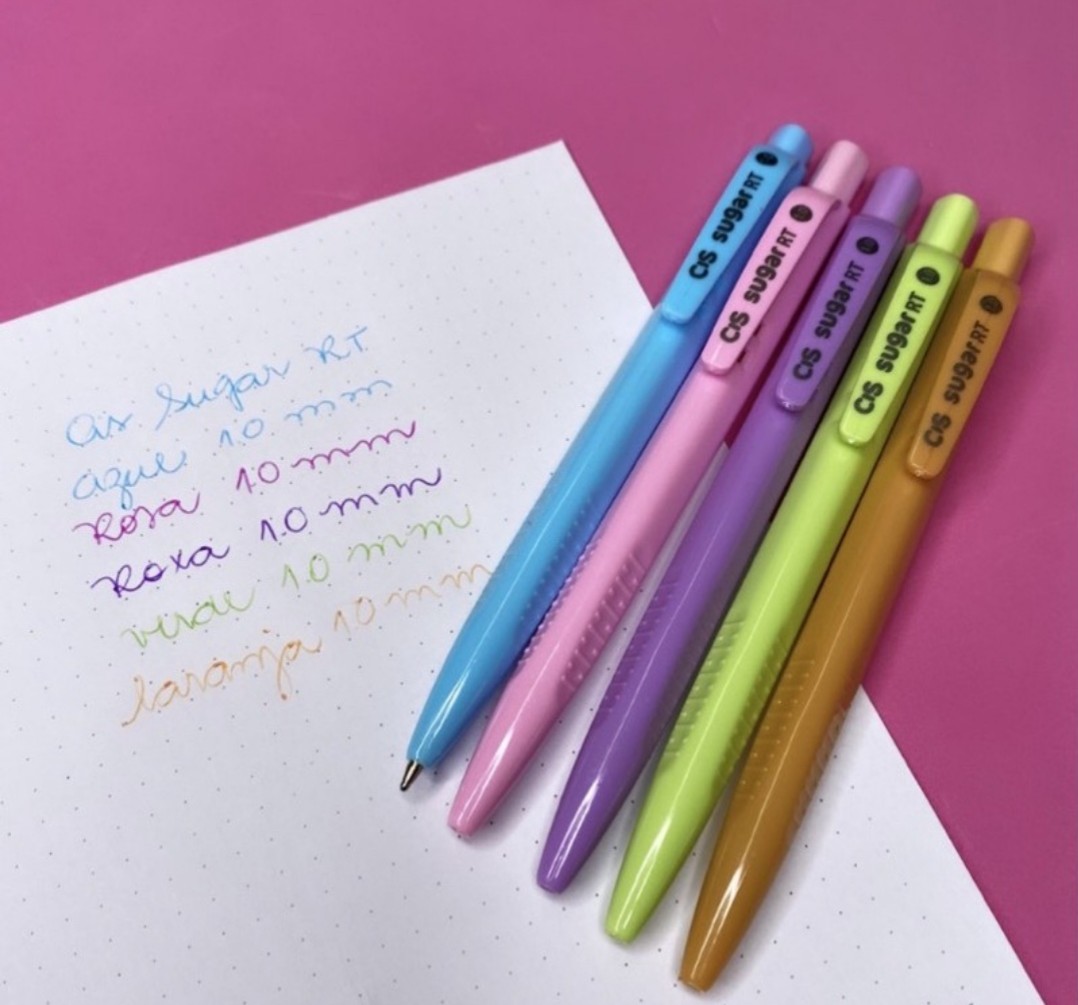 Cis Sugar RT
azul 1.0 mm
Rosa 1.0 mm
Roxa 1.0 mm
verde 1.0 mm
laranja 1.0 mm
CiS sugar RT
CiS sugar RT
CiS sugar RT
CiS sugar RT
CiS sugar RT